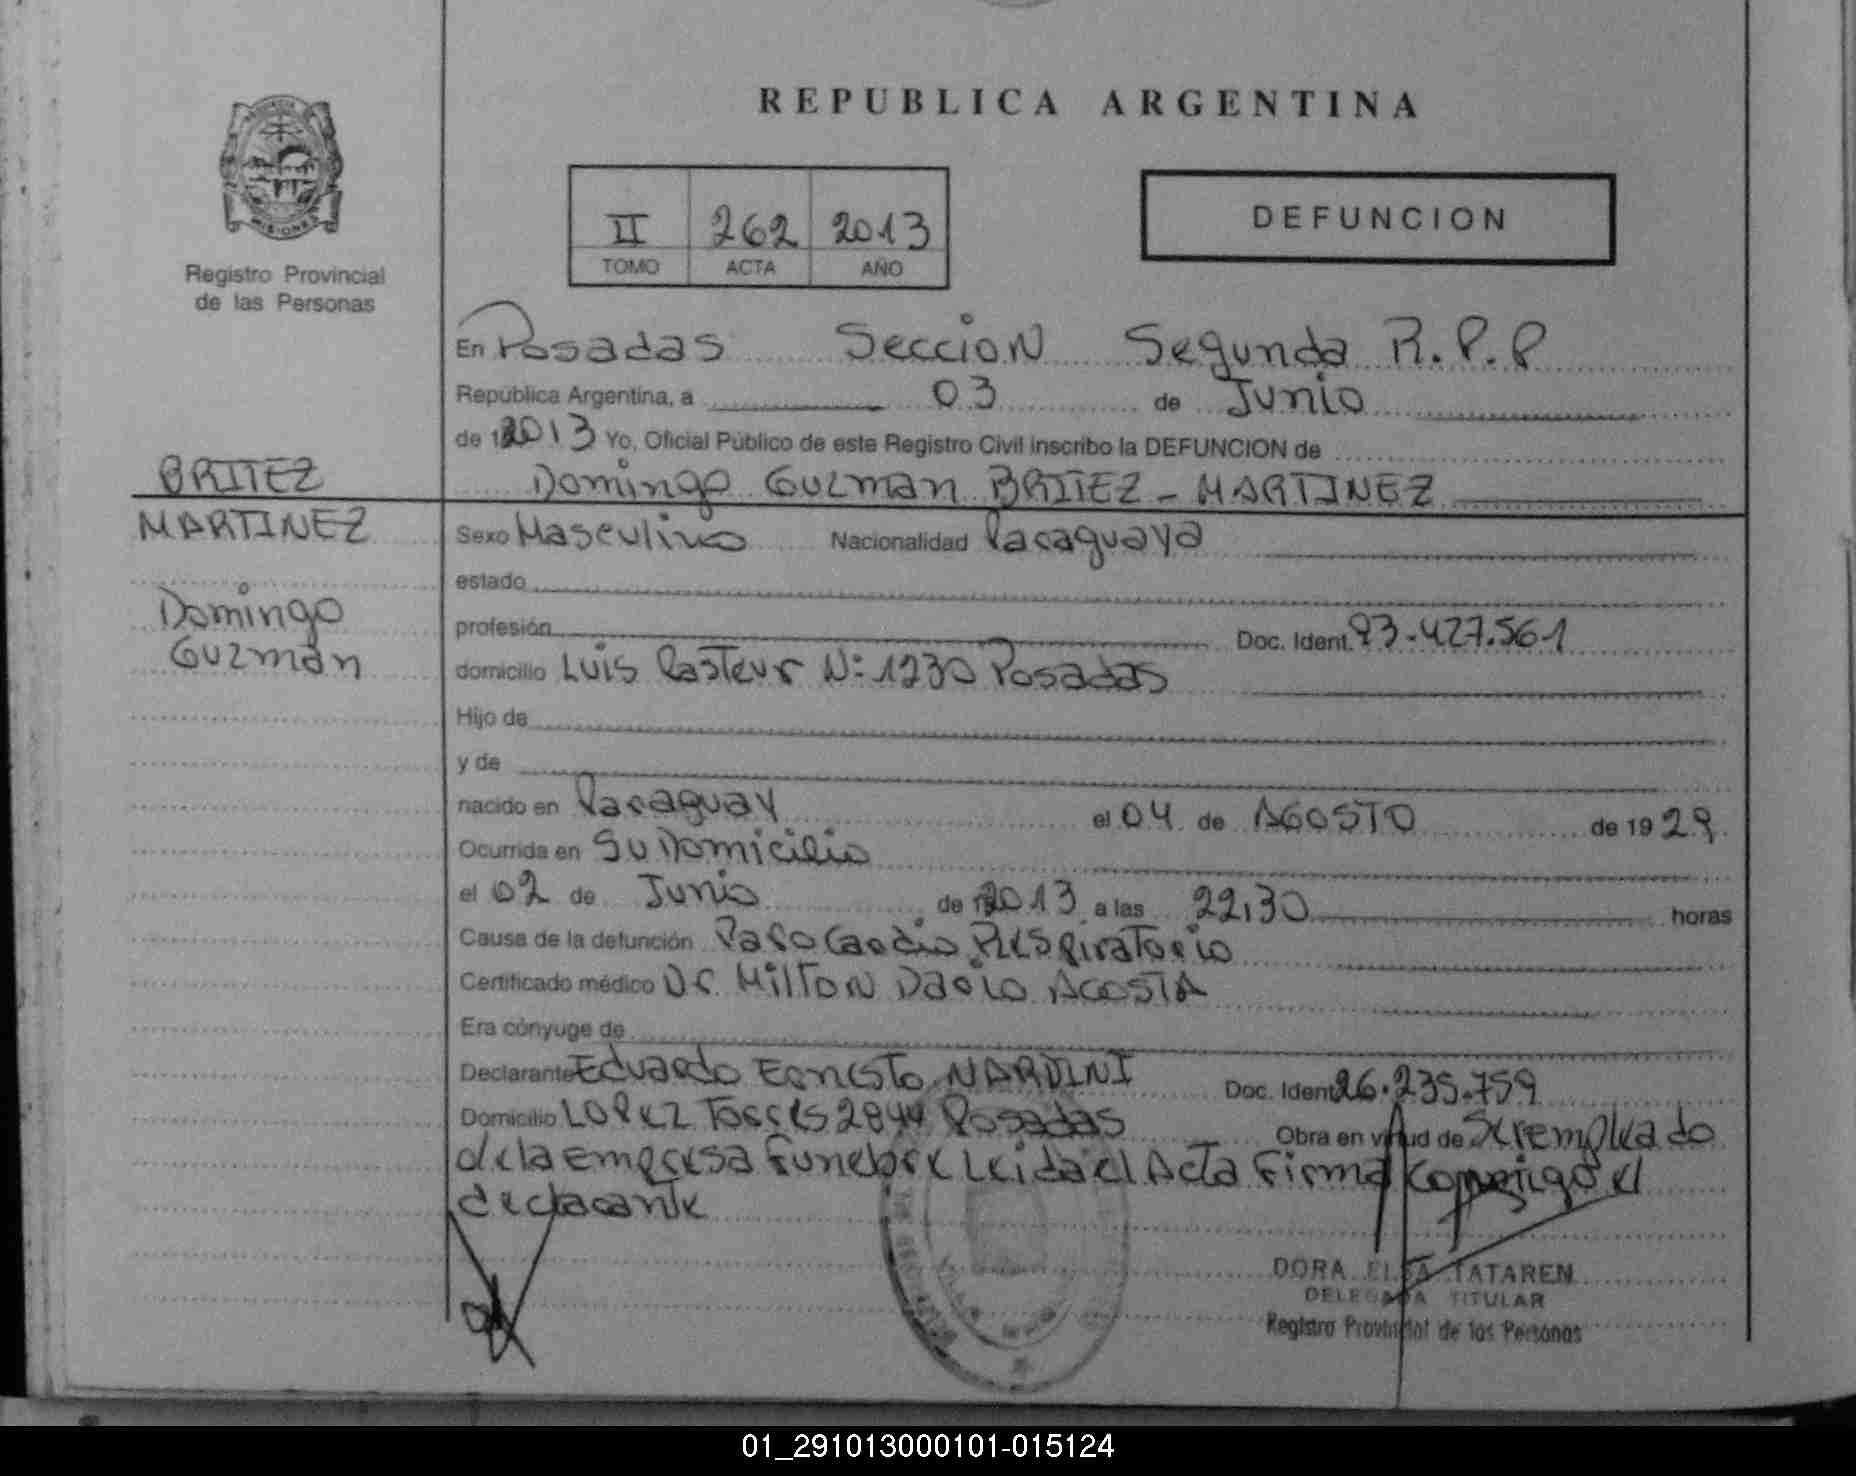 REPUBLICA ARGENTINA
MISIONES
Registro Provincial
de las Personas
II 262 2013
TOMO ACTA AÑO
DEFUNCION
En Posadas Seccion Segunda R.P.P
República Argentina, a 03 de Junio
de 2013 Yo, Oficial Público de este Registro Civil inscribo la DEFUNCION de
Domingo Guzman BRITEZ - MARTINEZ
BRITEZ
MARTINEZ
Domingo
Guzmán
Sexo Masculino Nacionalidad Paraguaya
estado
profesión Doc. Ident. 93.427.561
domicilio Luis Pasteur N: 1230 Posadas
Hijo de
y de
nacido en Paraguay el 04 de AGOSTO de 1929
Ocurrida en Su Domicilio
el 02 de Junio de 2013 a las 22,30 horas
Causa de la defunción Paro Cardio Respiratorio
Certificado médico Dr. Milton Dario ACOSTA
Era cónyuge de
Declarante Eduardo Ernesto NARDINI Doc. Ident 26.235.759
Domicilio LOPEZ Torres 2844 Posadas Obra en virtud de Ser empleado
de la empresa Funebre Leida el Acta Firma Conmigo el
declarante
DORA ELSA TATAREN
DELEGADA TITULAR
Registro Provincial de las Personas
01_291013000101-015124